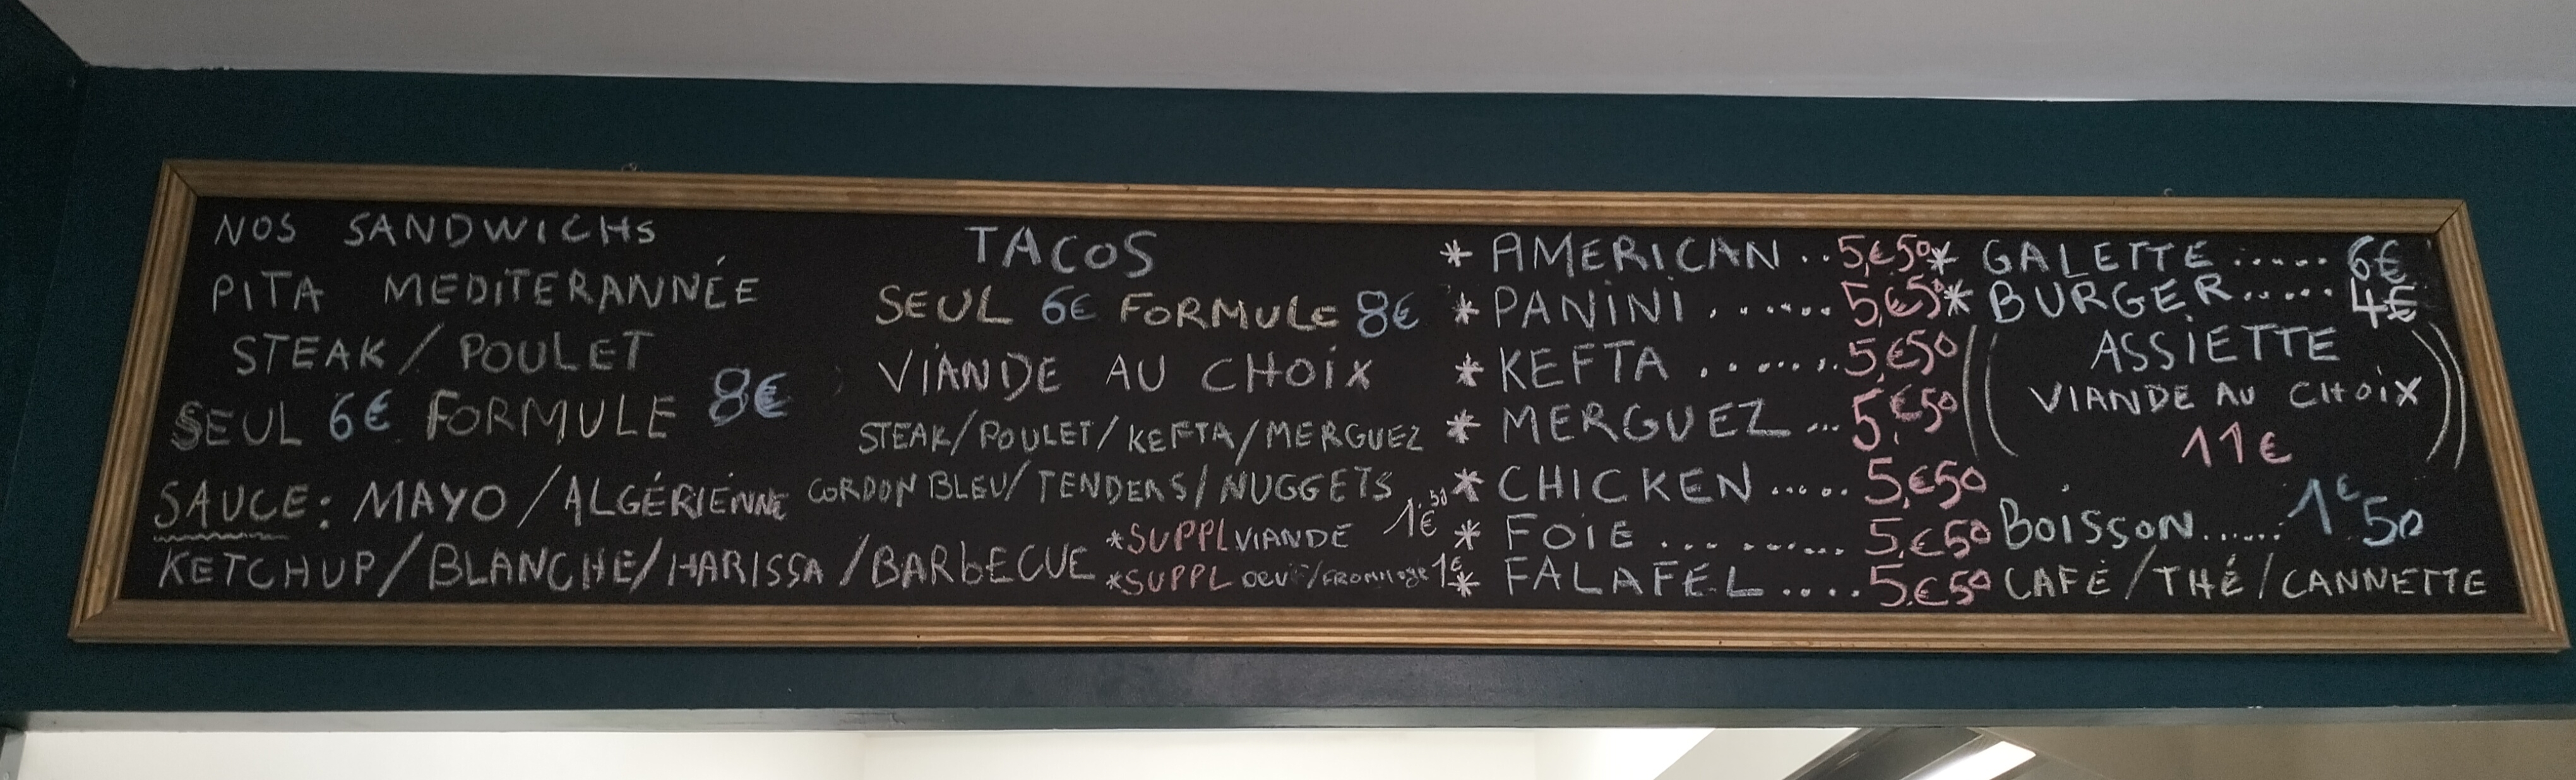 NOS SANDWICHS
PITA MEDITERANNÉE
STEAK/POULET
SEUL 6€ FORMULE 8€
SAUCE: MAYO/ALGÉRIENNE
KETCHUP/BLANCHE/HARISSA/BARBECUE
TACOS
SEUL 6€ FORMULE 8€
VIANDE AU CHOIX
STEAK/POULET/KEFTA/MERGUEZ
CORDON BLEU/TENDERS/NUGGETS
*SUPPL VIANDE 1€,50
*SUPPL OEUF/FROMAGE 1€
* AMERICAN .. 5,€50
* PANINI ....... 5,€50
* KEFTA ....... 5,€50
* MERGUEZ ... 5,€50
* CHICKEN ..... 5,€50
* FOIE ......... 5,€50
* FALAFEL .... 5,€50
* GALETTE ..... 6€
* BURGER ..... 4€
((ASSIETTE
VIANDE AU CHOIX
11€))
BOISSON...... 1€50
CAFÉ/THÉ/CANNETTE